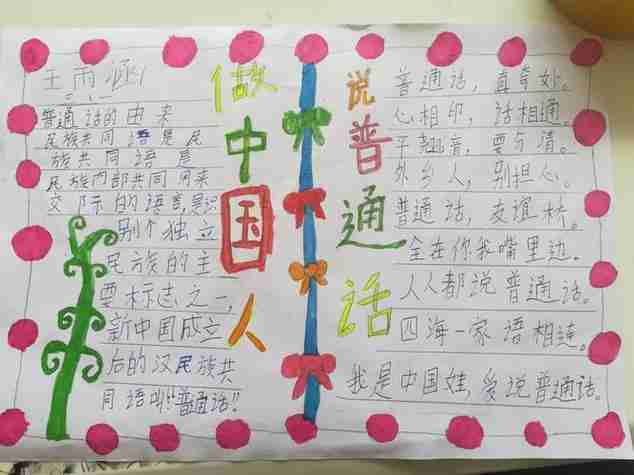 王雨涵
普通话的由来
民族共同语是民
族共同语是
民族内部共同用来
交际的语言,是识
别个独立
民族的主
要标志之一,
新中国成立
后的汉民族共
同语叫"普通话"!
做中国人
说普通话
普通话,真奇妙。
心相印,话相通。
平翘音,要分清。
外乡人,别担心。
普通话,友谊桥。
全在你我嘴里边。
人人都说普通话。
四海一家语相连。
我是中国娃,爱说普通话。